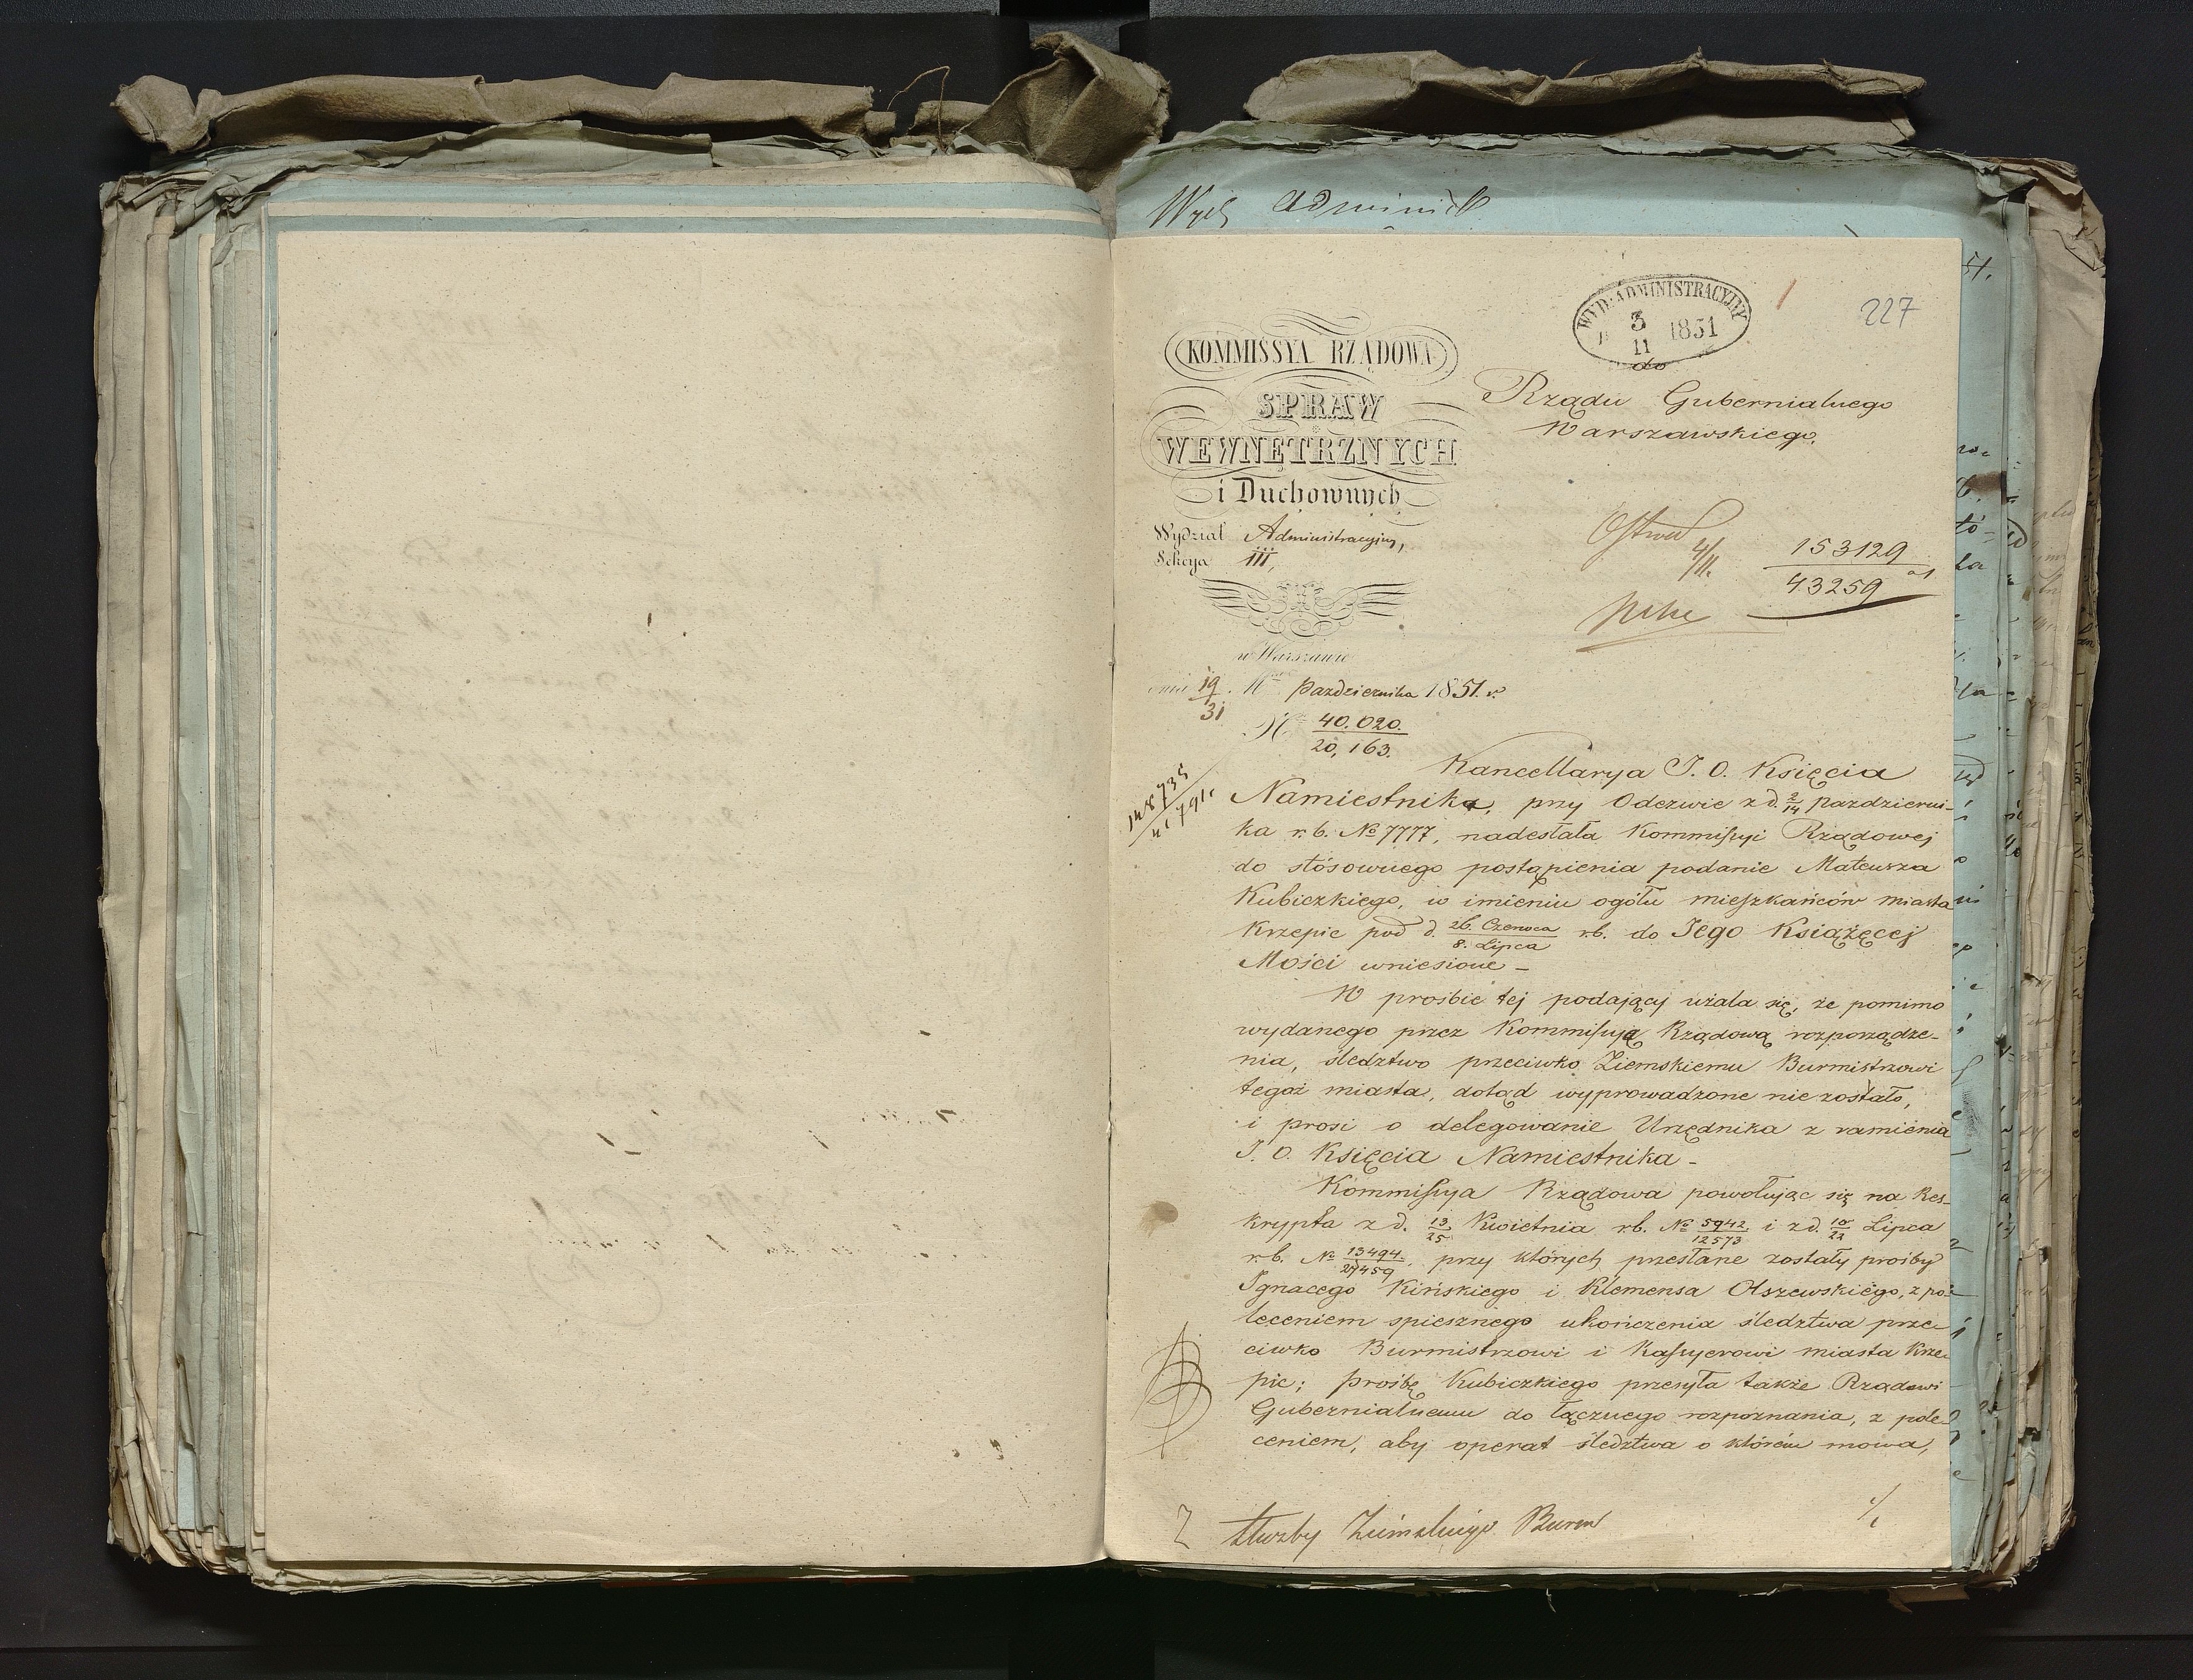 Wyd. Administ.
WYD: ADMINISTRACYJNY
3
11 1851
227
KOMMISSYA RZĄDOWA
SPRAW
WEWNĘTRZNYCH
i Duchownych
Wydział Administracyjny,
Sekcya III,
w Warszawie
dnia 19/31 Października 1851 r.
№ 40.020./20,163.
do
Rządu Gubernialnego
Warszawskiego.
4/11.
153129
43259
148735
41791.
Kancellarya J. O. Księcia
Namiestnika, przy Odezwie z d. 2/14 październi-
ka r. b. № 7777, nadesłała Kommissyi Rządowej
do stósownego postąpienia podanie Mateusza
Kubiczkiego, w imieniu ogółu mieszkańców miasta
Krzepic pod d. 26. Czerwca/8. Lipca r.b. do Jego Książęcej
Mości wniesione –
W prośbie tej podający użala się, że pomimo
wydanego przez Kommissyą Rządową rozporządze-
nia, śledztwo przeciwko Ziemskiemu Burmistrzowi
tegoż miasta, dotąd wyprowadzone nie zostało,
i prosi o delegowanie Urzędnika z ramienia
J. O. Księcia Namiestnika –
Kommissya Rządowa powołując się na Res-
krypta z d. 13/25 Kwietnia r.b. № 5942/12573 i z d. 10/22 Lipca
r.b. № 13494/27459, przy których przesłane zostały prośby
Ignacego Kińskiego i Klemensa Olszewskiego, z po-
leceniem spiesznego ukończenia śledztwa prze-
ciwko Burmistrzowi i Kassyerowi miasta Krze-
pic; prośbę Kubiczkiego przesyła także Rządowi
Gubernialnemu do łącznego rozpoznania, z pole-
ceniem, aby operat śledztwa o którém mowa,
służby Ziemskiego Burm